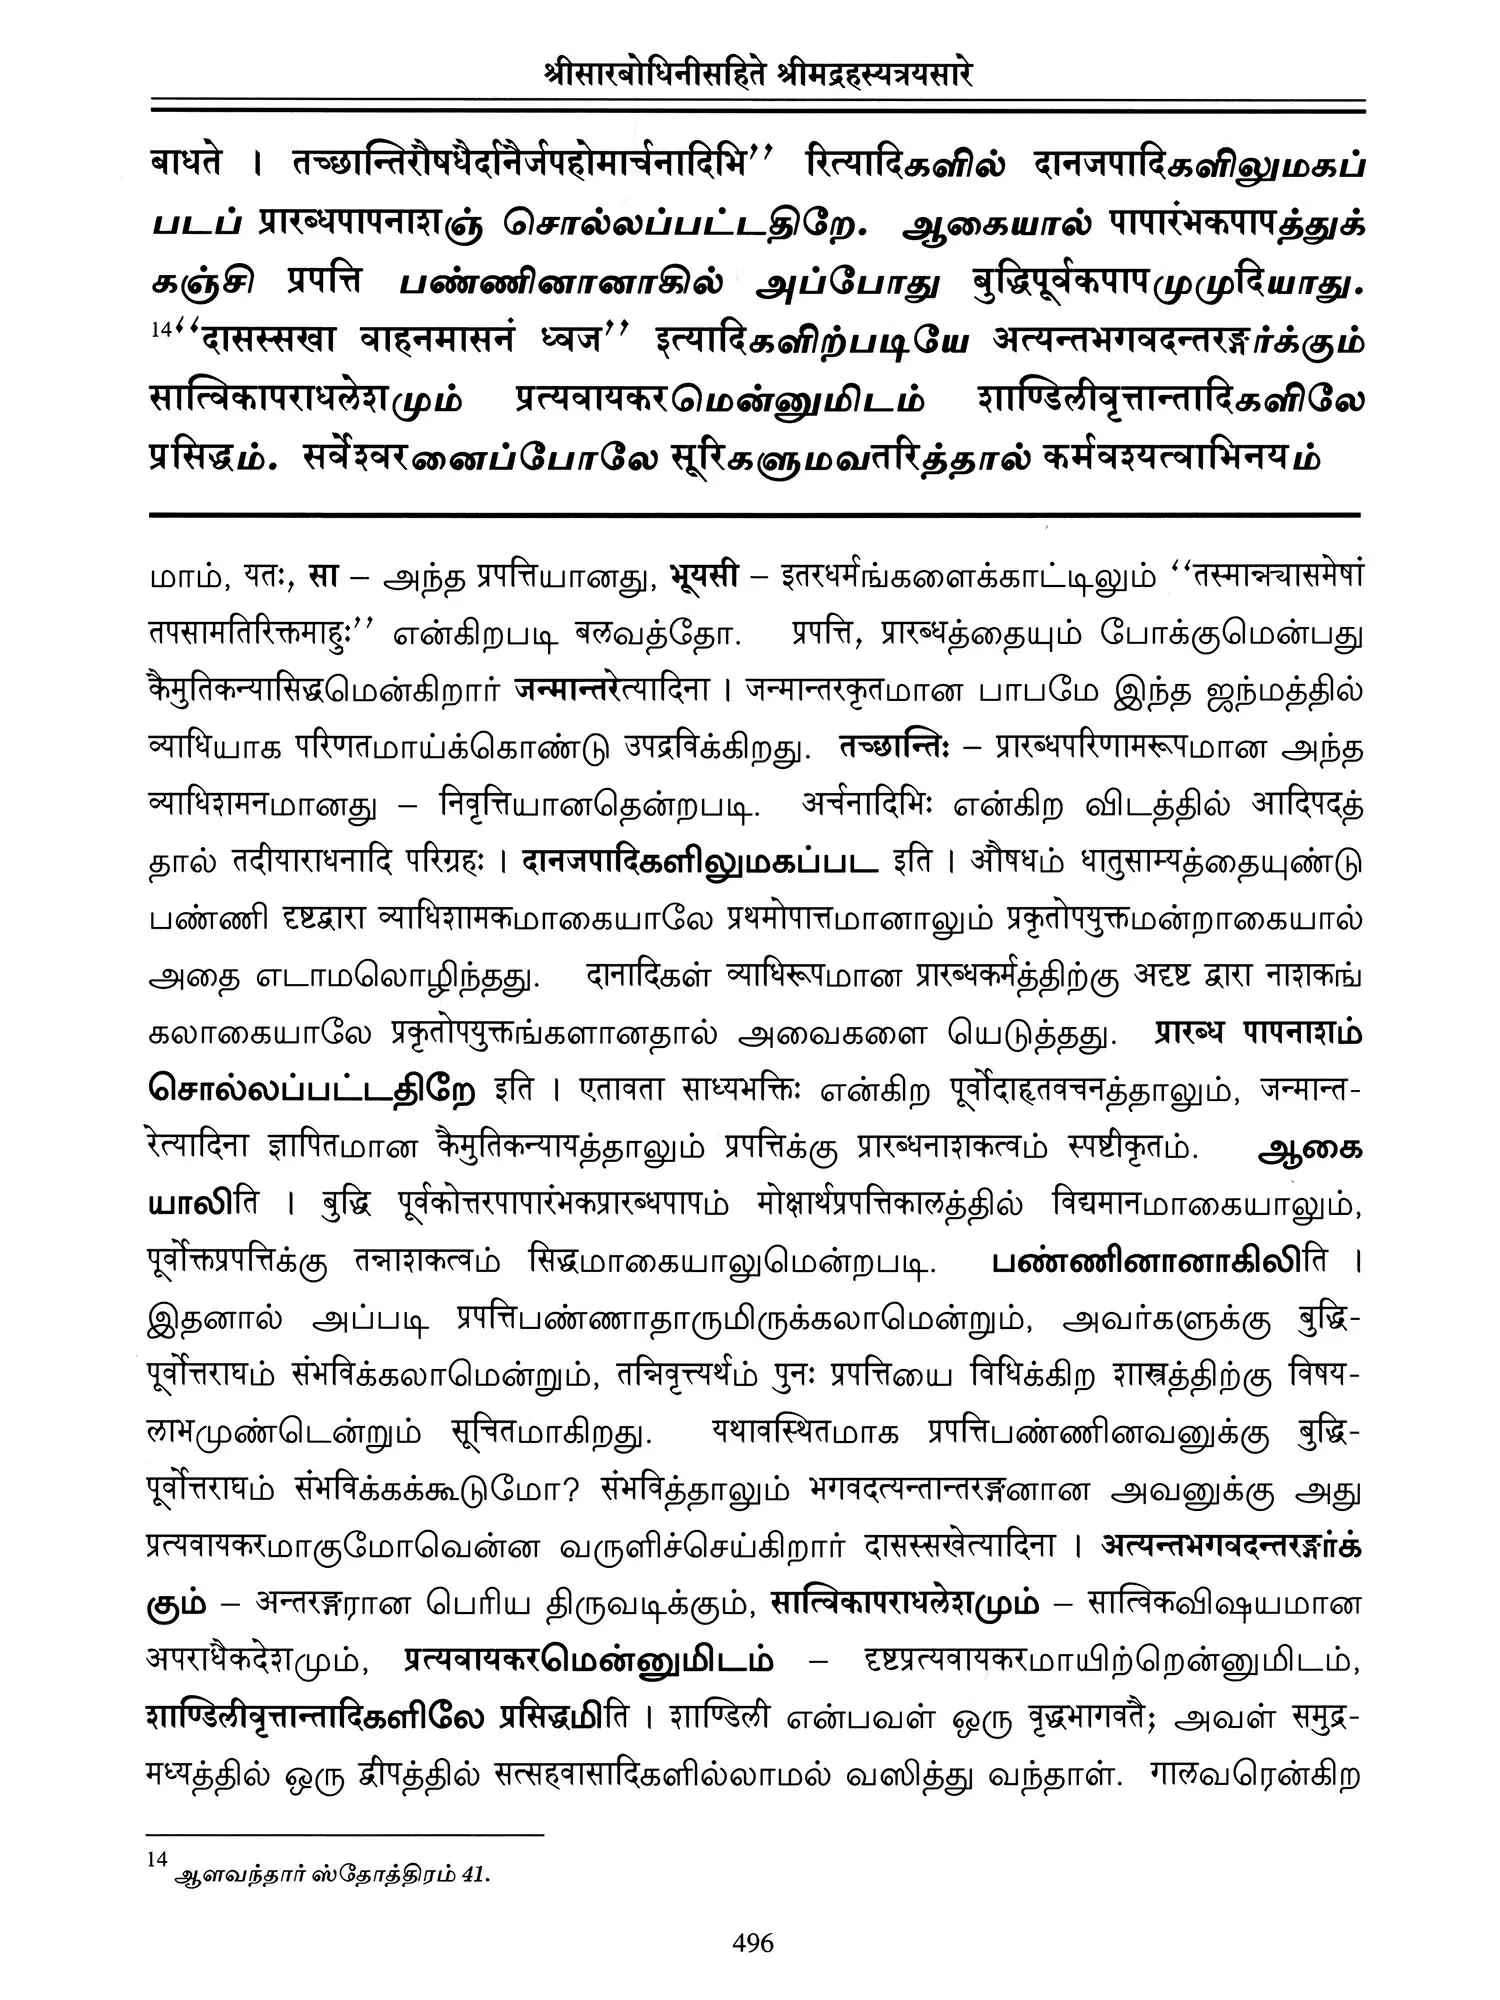 श्रीसारबोधिनीसहिते श्रीमद्रहस्यत्रयसारे
बाधते । तच्छान्तिरौषधैर्दानैर्जपहोमार्चनादिभि’’ रित्यादिகளில் दानजपादिகளிலுமகப்
படப் प्रारब्धपापनाशஞ் சொல்லப்பட்டதிறே. ஆகையால் पापारंभकपापத்துக்
கஞ்சி प्रपत्ति பண்ணினானாகில் அப்போது बुद्धिपूर्वकपापமுமுदिயாது.
14‘‘दासस्सखा वाहनमासनं ध्वज’’ इत्यादिகளிற்படியே अत्यन्तभगवदन्तरङ्गர்க்கும்
सात्विकापराधलेशமும் प्रत्यवायकरமென்னுமிடம் शाण्डिलीवृत्तान्तादिகளிலே
प्रसिद्धம். सर्वेश्वरனைப்போலே सूरिகளுமவतरिத்தால் कर्मवश्यत्वाभिनयம்
மாம், यतः, सा – அந்த प्रपत्तिயானது, भूयसी – इतरधर्मங்களைக்காட்டிலும் ‘‘तस्मान्न्यासमेषां
तपसामतिरिक्तमाहुः’’ என்கிறபடி बलவத்தோ. प्रपत्ति, प्रारब्धத்தையும் போக்குமென்பது
कैमुतिकन्यासिद्धமென்கிறார் जन्मान्तरेत्यादिना । जन्मान्तरकृतமான பாபமே இந்த ஜந்மத்தில்
व्याधिயாக परिणतமாய்க்கொண்டு उपद्रविக்கிறது. तच्छान्तिः – प्रारब्धपरिणामरूपமான அந்த
व्याधिशमनமானது – निवृत्तिயானதென்றபடி. अर्चनादिभिः என்கிற விடத்தில் आदिपदத்
தால் तदीयाराधनादि परिग्रहः । दानजपादिகளிலுமகப்பட इति । औषधம் धातुसाम्यத்தையுண்டு
பண்ணி दृष्टद्वारा व्याधिशामकமாகையாலே प्रथमोपात्तமானாலும் प्रकृतोपयुक्तமன்றாகையால்
அதை எடாமலொழிந்தது. दानादिகள் व्याधिरूपமான प्रारब्धकर्मத்திற்கு अदृष्ट द्वारा नाशकங்
கலாகையாலே प्रकृतोपयुक्तங்களானதால் அவைகளை யெடுத்தது. प्रारब्ध पापनाशம்
சொல்லப்பட்டதிறே इति । एतावता साध्यभक्तिः என்கிற पूर्वोदाहृतवचनத்தாலும், जन्मान्त-
रेत्यादिना ज्ञापितமான कैमुतिकन्यायத்தாலும் प्रपत्तिக்கு प्रारब्धनाशकत्वம் स्पष्टीकृतம். ஆகை
யாலிति । बुद्धि पूर्वकोत्तरपापारंभकप्रारब्धपापம் मोक्षार्थप्रपत्तिकालத்தில் विद्यमानமாகையாலும்,
पूर्वोक्तप्रपत्तिக்கு तन्नाशकत्वம் सिद्धமாகையாலுமென்றபடி. பண்ணினானாகிலிति ।
இதனால் அப்படி प्रपत्तिபண்ணாதாருமிருக்கலாமென்றும், அவர்களுக்கு बुद्धि-
पूर्वोत्तराघம் संभविக்கலாமென்றும், तन्निवृत्त्यर्थம் पुनः प्रपत्तिயை विधिக்கிற शास्त्रத்திற்கு विषय-
लाभமுண்டென்றும் सूचितமாகிறது. यथावस्थितமாக प्रपत्तिபண்ணினவனுக்கு बुद्धि-
पूर्वोत्तराघம் संभविக்கக்கூடுமோ? संभविத்தாலும் भगवदत्यन्तान्तरङ्गனான அவனுக்கு அது
प्रत्यवायकरமாகுமோவென்ன வருளிச்செய்கிறார் दासस्सखेत्यादिना । अत्यन्तभगवदन्तरङ्गர்க்
கும் – अन्तरङ्गரான பெரிய திருவடிக்கும், सात्विकापराधलेशமும் – सात्विकவிஷயமான
अपराधैकदेशமும், प्रत्यवायकरமென்னுமிடம் – दृष्टप्रत्यवायकरமாயிற்றென்னுமிடம்,
शाण्डिलीवृत्तान्तादिகளிலே प्रसिद्धமிति । शाण्डिली என்பவள் ஒரு वृद्धभागवतै; அவள் समुद्र-
मध्यத்தில் ஒரு द्वीपத்தில் सत्सहवासादिகளில்லாமல் வஸித்து வந்தாள். गालவரென்கிற
14 ஆளவந்தார் ஸ்தோத்திரம் 41.
496